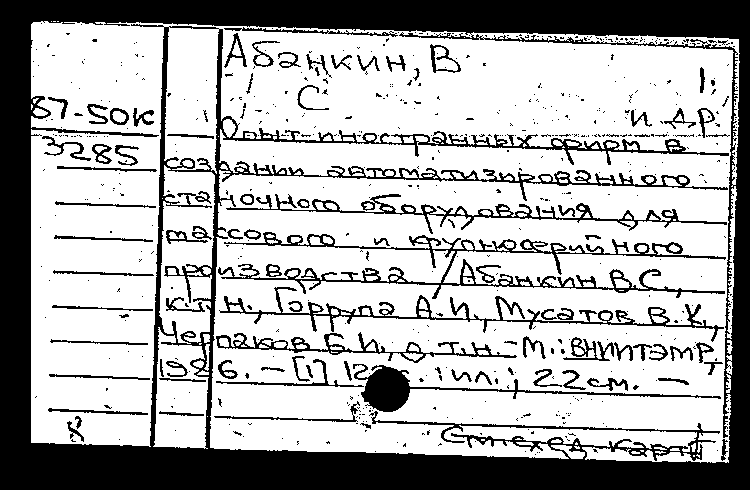 Абанкин, В
1.
С
87-50к
и др.
3285
Опыт иностранных фирм в
создании автоматизированного
станочного оборудования для
массового и крупносерийного
производства / Абанкин В.С.,
к.т.н., Горрупа А.И., Мусатов В.К.,
Черпаков Б.И., д.т.н. - М.: ВНИИТЭМР,
1986. - [1], с. : ил.; 22 см. -
См. след. карт
8